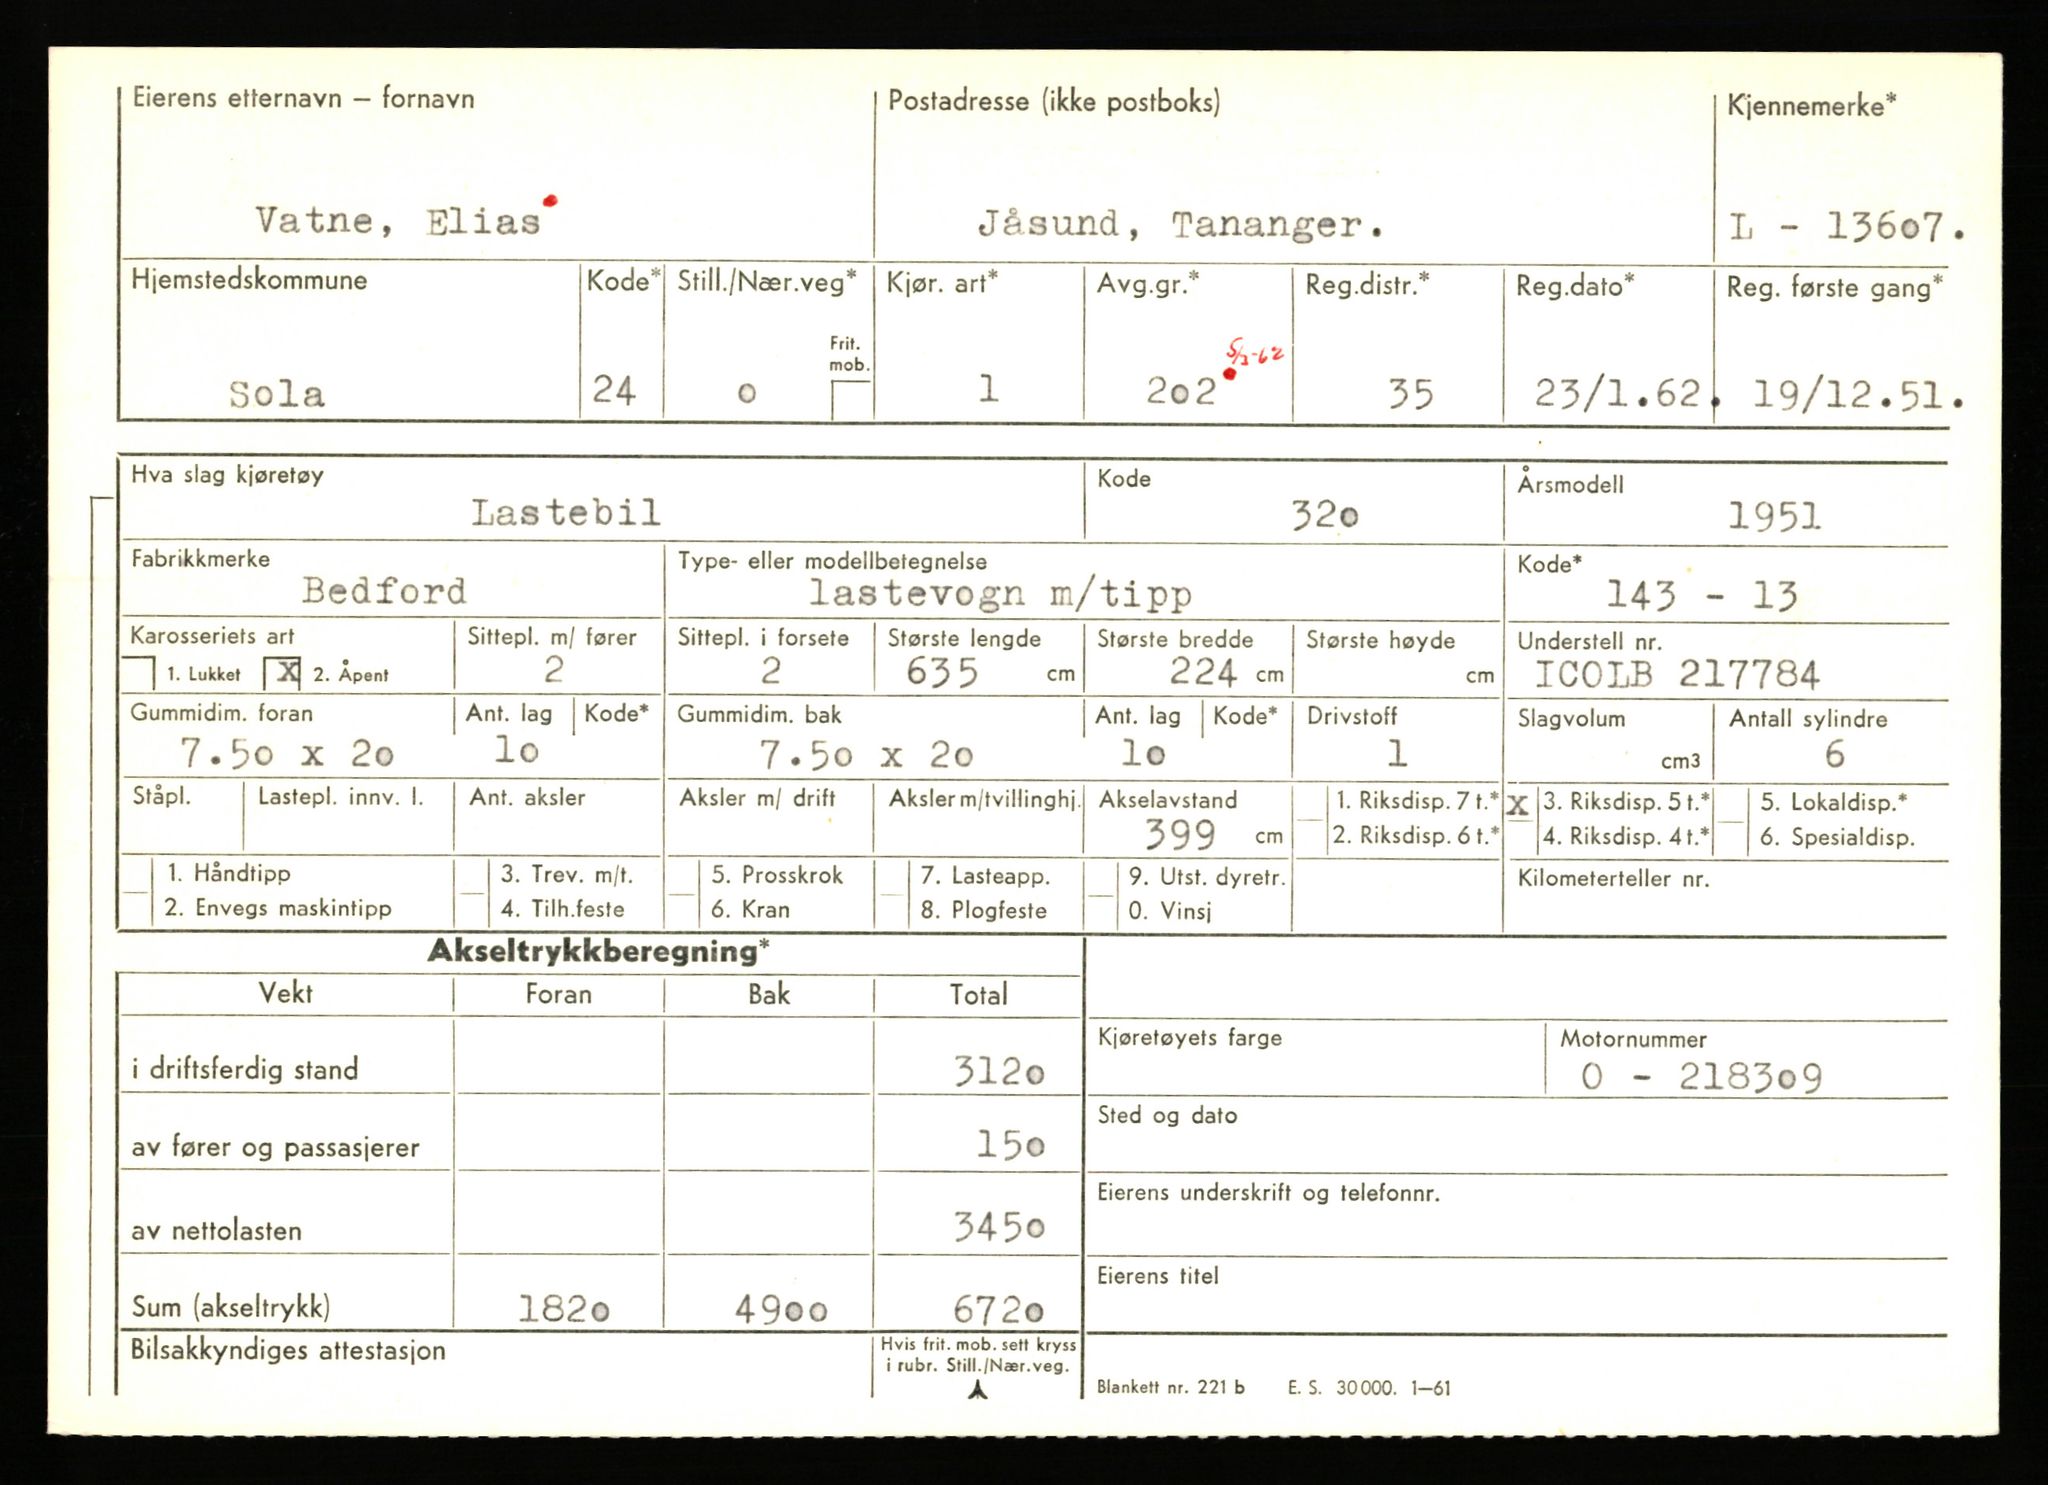 Eierens etternavn – fornavn Postadresse (ikke postboks) Kjennemerke*
Vatne, Elias Jåsund, Tananger. L - 13607.
Hjemstedskommune Kode* Still./Nær.veg* Kjør. art* Avg.gr.* Reg.distr.* Reg.dato* Reg. første gang*
Frit. mob.
5/3-62
Sola 24 0 1 202 35 23/1.62. 19/12.51.
Hva slag kjøretøy Kode Årsmodell
Lastebil 320 1951
Fabrikkmerke Type- eller modellbetegnelse Kode*
Bedford lastevogn m/tipp 143 - 13
Karosseriets art Sittepl. m/ fører Sittepl. i forsete Største lengde Største bredde Største høyde Understell nr.
1. Lukket X 2. Åpent 2 2 635 cm 224 cm cm ICOLB 217784
Gummidim. foran Ant. lag Kode* Gummidim. bak Ant. lag Kode* Drivstoff Slagvolum Antall sylindre
7.50 x 20 10 7.50 x 20 10 1 cm3 6
Ståpl. Lastepl. innv. l. Ant. aksler Aksler m/ drift Aksler m/tvillinghj. Akselavstand 1. Riksdisp. 7 t.* X 3. Riksdisp. 5 t.* 5. Lokaldisp.*
399 cm 2. Riksdisp. 6 t.* 4. Riksdisp. 4 t.* 6. Spesialdisp.
1. Håndtipp 3. Trev. m/t. 5. Prosskrok 7. Lasteapp. 9. Utst. dyretr. Kilometerteller nr.
2. Envegs maskintipp 4. Tilh.feste 6. Kran 8. Plogfeste 0. Vinsj
Akseltrykkberegning*
Vekt Foran Bak Total
Kjøretøyets farge Motornummer
i driftsferdig stand 3120 0 - 218309
Sted og dato
av fører og passasjerer 150
Eierens underskrift og telefonnr.
av nettolasten 3450
Eierens titel
Sum (akseltrykk) 1820 4900 6720
Bilsakkyndiges attestasjon Hvis frit. mob. sett kryss
i rubr. Still./Nær.veg.
Blankett nr. 221 b E. S. 30 000. 1–61